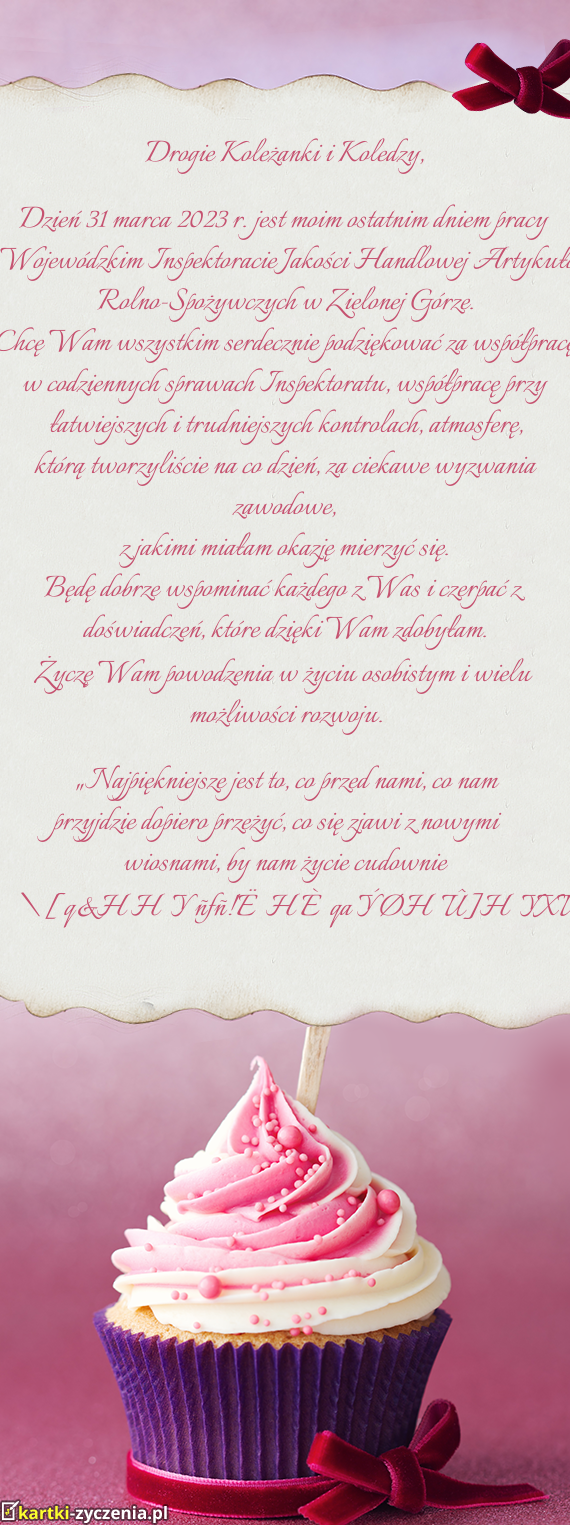 Drogie Koleżanki i Koledzy,
Dzień 31 marca 2023 r. jest moim ostatnim dniem pracy
Wojewódzkim Inspektoracie Jakości Handlowej Artykułó
Rolno-Spożywczych w Zielonej Górzę.
Chcę Wam wszystkim serdecznie podziękować za współpracę
w codziennych sprawach Inspektoratu, współpracę przy
łatwiejszych i trudniejszych kontrolach, atmosferę,
którą tworzyliście na co dzień, za ciekawe wyzwania
zawodowe,
z jakimi miałam okazję mierzyć się.
Będę dobrze wspominać każdego z Was i czerpać z
doświadczeń, które dzięki Wam zdobyłam.
Życzę Wam powodzenia w życiu osobistym i wielu
możliwości rozwoju.
„Najpiękniejsze jest to, co przed nami, co nam
przyjdzie dopiero przeżyć, co się zjawi z nowymi
wiosnami, by nam życie cudownie
kartki-zyczenia.pl